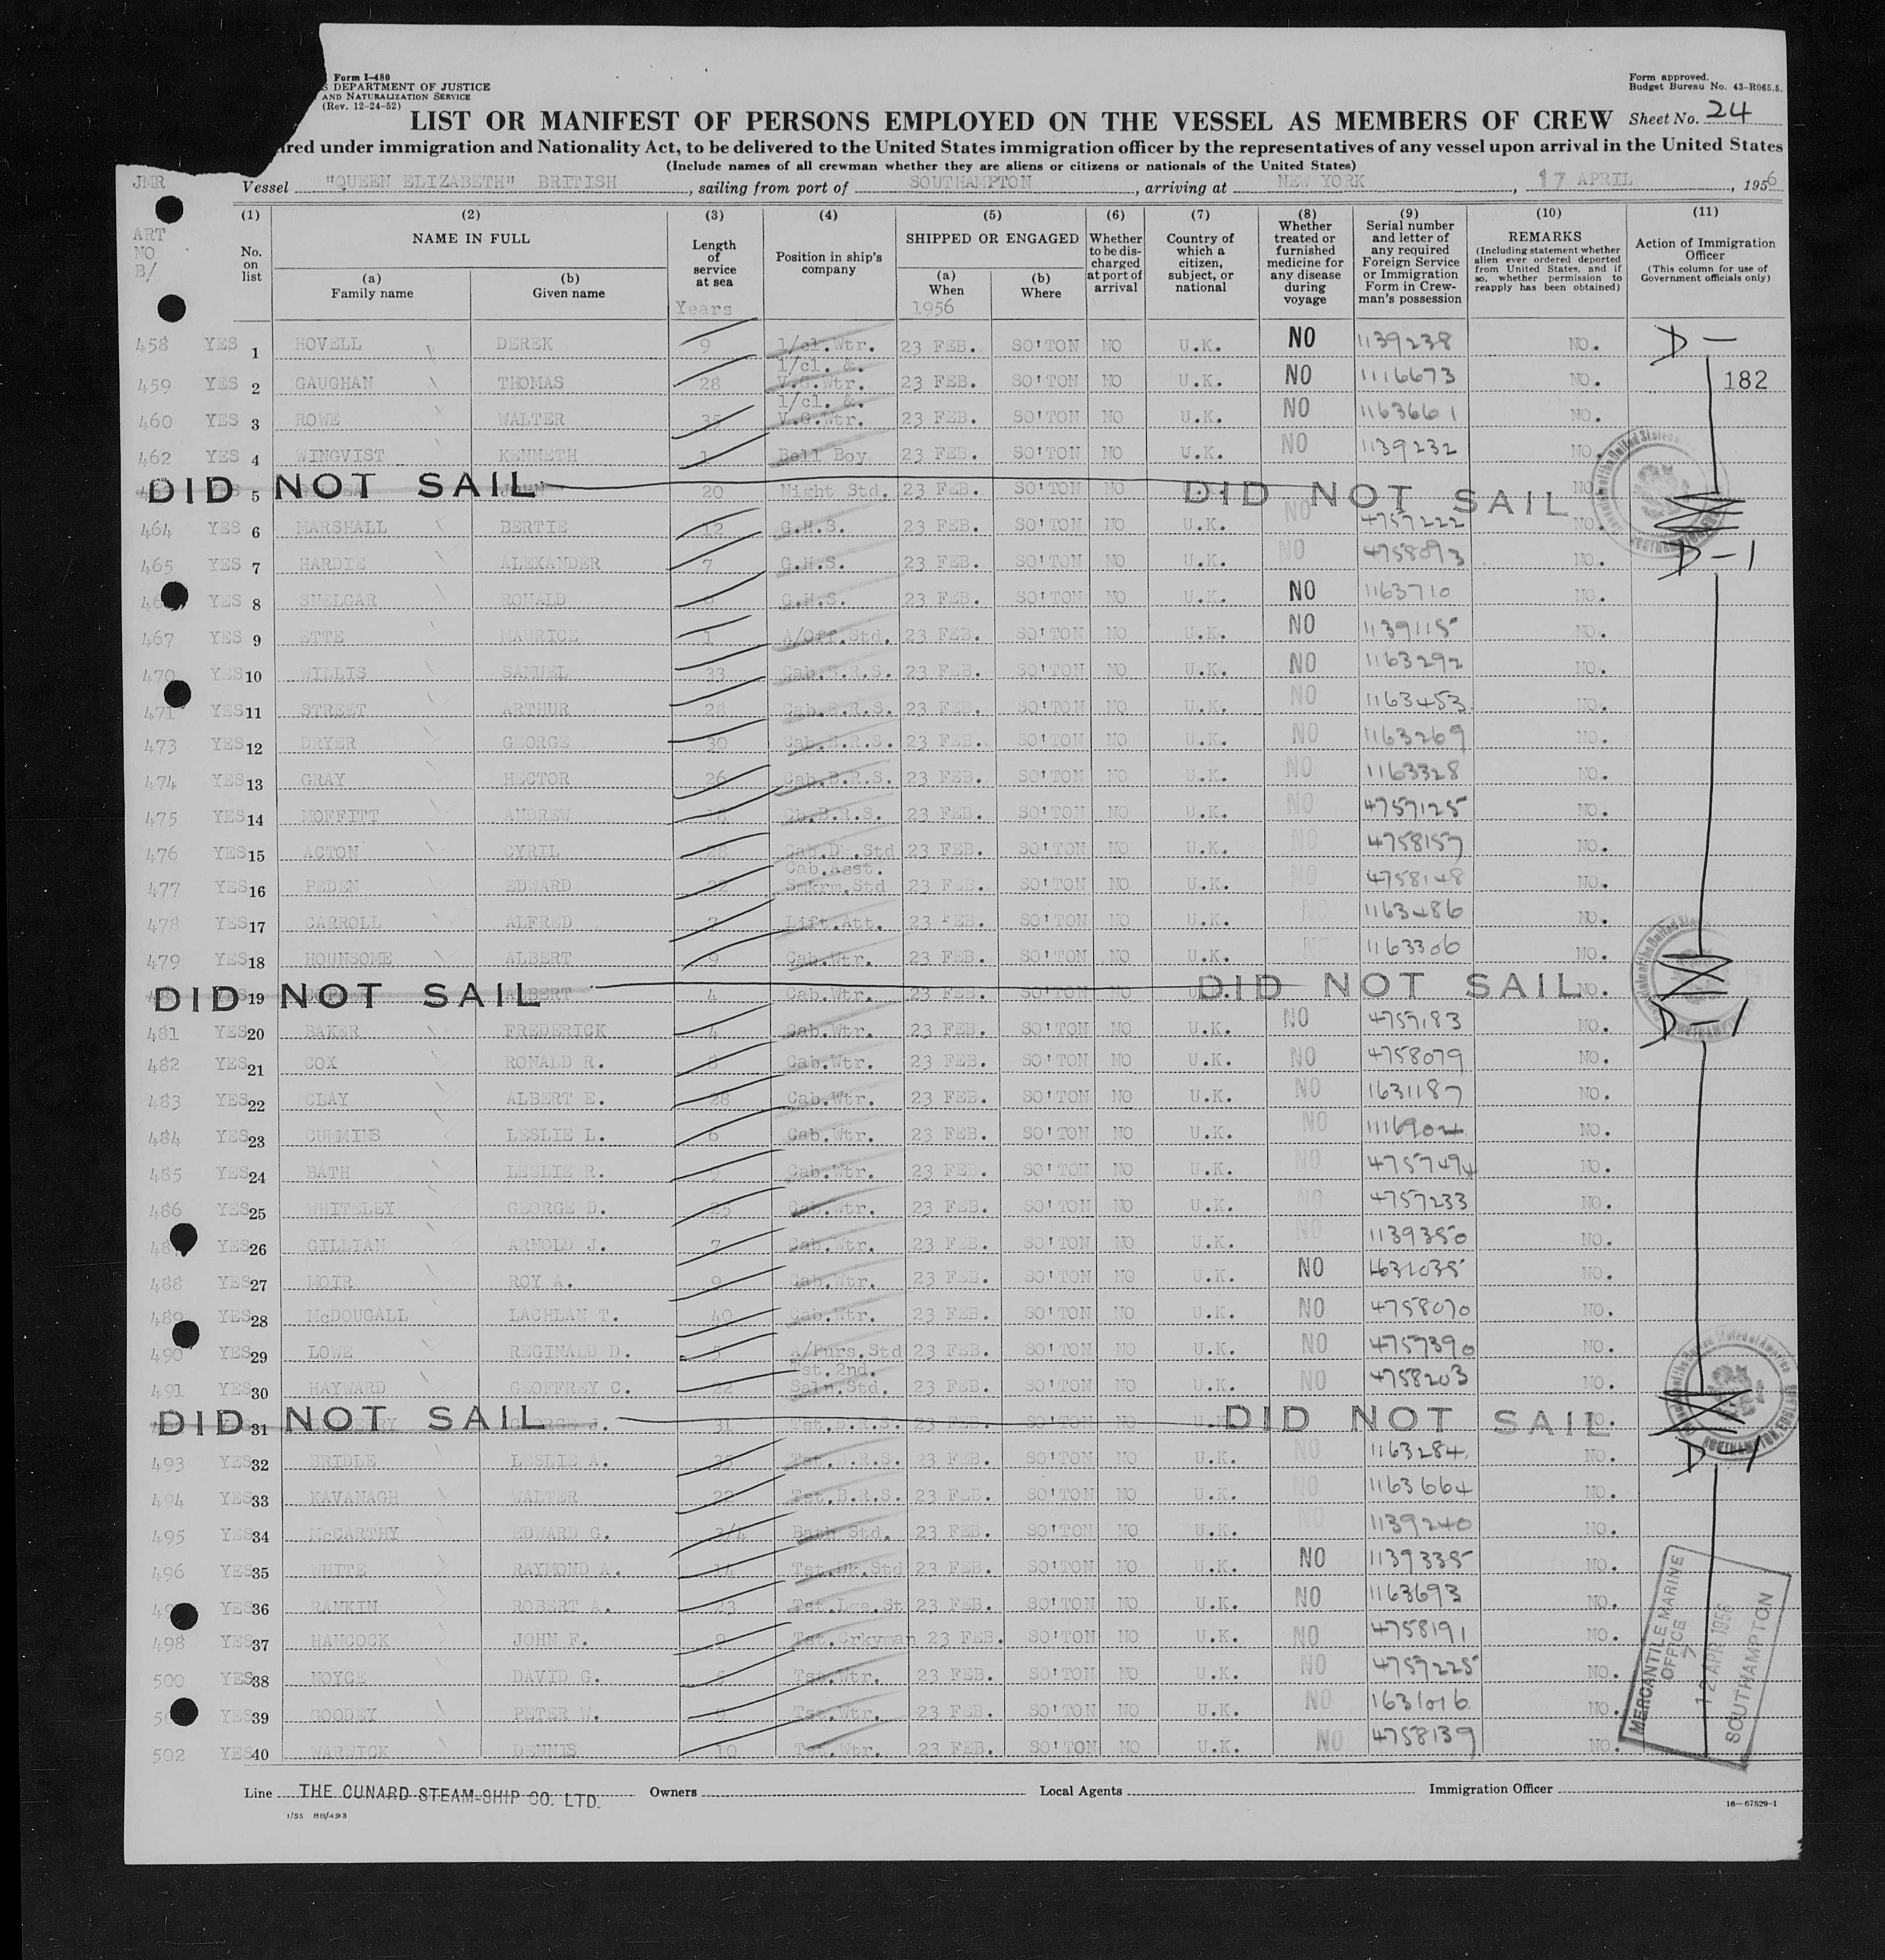 Form I-480
DEPARTMENT OF JUSTICE
AND NATURALIZATION SERVICE
(Rev. 12-24-52)
Form approved.
Budget Bureau No. 43-R065.5.
LIST OR MANIFEST OF PERSONS EMPLOYED ON THE VESSEL AS MEMBERS OF CREW Sheet No. 24
under immigration and Nationality Act, to be delivered to the United States immigration officer by the representatives of any vessel upon arrival in the United States
(Include names of all crewman whether they are aliens or citizens or nationals of the United States)
JMR
Vessel "QUEEN ELIZABETH" BRITISH, sailing from port of SOUTHAMPTON, arriving at NEW YORK, 17 APRIL, 1956
ART
NO
B/
(1) No. on list
(2) NAME IN FULL (a) Family name (b) Given name
(3) Length of service at sea Years
(4) Position in ship's company
(5) SHIPPED OR ENGAGED (a) When 1956 (b) Where
(6) Whether to be discharged at port of arrival
(7) Country of which a citizen, subject, or national
(8) Whether treated or furnished medicine for any disease during voyage
(9) Serial number and letter of any required Foreign Service or Immigration Form in Crewman's possession
(10) REMARKS (Including statement whether alien ever ordered deported from United States, and if so, whether permission to reapply has been obtained)
(11) Action of Immigration Officer (This column for use of Government officials only)
458 YES 1 HOVELL DEREK 9 1/cl.Wtr. 23 FEB. SO'TON NO U.K. NO 1139238 NO. D-
459 YES 2 GAUGHAN THOMAS 28 1/cl. &. V.G.Wtr. 23 FEB. SO'TON NO U.K. NO 1116673 NO. 182
460 YES 3 ROWE WALTER 35 1/cl. &. V.G.Wtr. 23 FEB. SO'TON NO U.K. NO 1163661 NO.
462 YES 4 WINGVIST KENNETH 1 Bell Boy 23 FEB. SO'TON NO U.K. NO 1139232 NO.
DID NOT SAIL 5 JOHN 20 Night Std. 23 FEB. SO'TON NO DID NOT SAIL NO
464 YES 6 MARSHALL BERTIE 12 G.H.S. 23 FEB. SO'TON NO U.K. NO 4757222 NO.
465 YES 7 HARDIE ALEXANDER 7 G.H.S. 23 FEB. SO'TON NO U.K. NO 4758093 NO. D-1
YES 8 SMELGAR RONALD G.H.S. 23 FEB. SO'TON NO U.K. NO 1163710 NO.
467 YES 9 ETTE MAURICE 1 A/Off.Std. 23 FEB. SO'TON NO U.K. NO 1139115 NO.
470 YES 10 WILLIS SAMUEL 33 Cab.B.R.S. 23 FEB. SO'TON NO U.K. NO 1163292 NO.
471 YES 11 STREET ARTHUR 28 Cab.B.R.S. 23 FEB. SO'TON NO U.K. NO 1163453 NO.
473 YES 12 DRYER GEORGE 30 Cab.B.R.S. 23 FEB. SO'TON NO U.K. NO 1163269 NO.
474 YES 13 GRAY HECTOR 26 Cab.B.R.S. 23 FEB. SO'TON NO U.K. NO 1163328 NO.
475 YES 14 MOFFITT ANDREW Cb.B.R.S. 23 FEB. SO'TON NO U.K. NO 4757125 NO.
476 YES 15 ACTON CYRIL 28 Cab.Dk.Std 23 FEB. SO'TON NO U.K. NO 4758157 NO.
477 YES 16 PEDEN EDWARD 22 Cab.Asst. Smkrm.Std 23 FEB. SO'TON NO U.K. NO 4758148 NO.
478 YES 17 CARROLL ALFRED 7 Lift.Att. 23 FEB. SO'TON NO U.K. NO 1163486 NO.
479 YES 18 HOUNSOME ALBERT 9 Cab.Wtr. 23 FEB. SO'TON NO U.K. NO 1163306 NO.
DID NOT SAIL 19 ALBERT 4 Cab.Wtr. 23 FEB. SO'TON NO DID NOT SAIL NO.
481 YES 20 BAKER FREDERICK 4 Cab.Wtr. 23 FEB. SO'TON NO U.K. NO 4757183 NO. D-1
482 YES 21 COX RONALD R. 8 Cab.Wtr. 23 FEB. SO'TON NO U.K. NO 4758079 NO.
483 YES 22 CLAY ALBERT E. 28 Cab.Wtr. 23 FEB. SO'TON NO U.K. NO 1631187 NO.
484 YES 23 CUMMINS LESLIE L. 6 Cab.Wtr. 23 FEB. SO'TON NO U.K. NO 1116904 NO.
485 YES 24 BATH LESLIE R. Cab.Wtr. 23 FEB. SO'TON NO U.K. NO 4757494 NO.
486 YES 25 WHITELEY GEORGE D. 25 Cab.Wtr. 23 FEB. SO'TON NO U.K. NO 4757233 NO.
YES 26 GILLIAN ARNOLD J. 7 Cab.Wtr. 23 FEB. SO'TON NO U.K. NO 1139350 NO.
488 YES 27 MOIR ROY A. 9 Cab.Wtr. 23 FEB. SO'TON NO U.K. NO 1631035 NO.
489 YES 28 McDOUGALL LACHLAN T. 40 Cab.Wtr. 23 FEB. SO'TON NO U.K. NO 4758070 NO.
490 YES 29 LOWE REGINALD D. 5 A/Purs.Std 23 FEB. SO'TON NO U.K. NO 4757390 NO.
491 YES 30 HAYWARD GEOFFREY C. 22 Tst.2nd. Saln.Std. 23 FEB. SO'TON NO U.K. NO 4758203 NO.
DID NOT SAIL 31 GEORGE J. 31 Tst.B.R.S. 23 FEB. SO'TON NO U.K. DID NOT SAIL NO.
493 YES 32 BRIDLE LESLIE A. 35 Tst.B.R.S. 23 FEB. SO'TON NO U.K. NO 1163284 NO. D-1
494 YES 33 KAVANAGH WALTER 22 Tst.B.R.S. 23 FEB. SO'TON NO U.K. NO 1163664 NO.
495 YES 34 McCARTHY EDWARD G. 3/4 Bath Std. 23 FEB. SO'TON NO U.K. NO 1139240 NO.
496 YES 35 WHITE RAYMOND A. 14 Tst.Dk.Std 23 FEB. SO'TON NO U.K. NO 1139335 NO.
YES 36 RANKIN ROBERT A. 23 Tst.Lge.St 23 FEB. SO'TON NO U.K. NO 1163693 NO.
498 YES 37 HANCOCK JOHN F. 9 Tst.Crkyman 23 FEB. SO'TON NO U.K. NO 4758191 NO.
500 YES 38 NOYCE DAVID G. Tst.Wtr. 23 FEB. SO'TON NO U.K. NO 4757225 NO.
YES 39 GOODEY PETER W. Tst.Wtr. 23 FEB. SO'TON NO U.K. NO 1631016 NO.
502 YES 40 WARWICK DENNIS 10 Tst.Wtr. 23 FEB. SO'TON NO U.K. NO 4758139 NO.
MERCANTILE MARINE OFFICE
7
12 APR 1956
SOUTHAMPTON
Line THE CUNARD STEAM-SHIP CO. LTD. Owners Local Agents Immigration Officer
1/55 88/493
16-67529-1